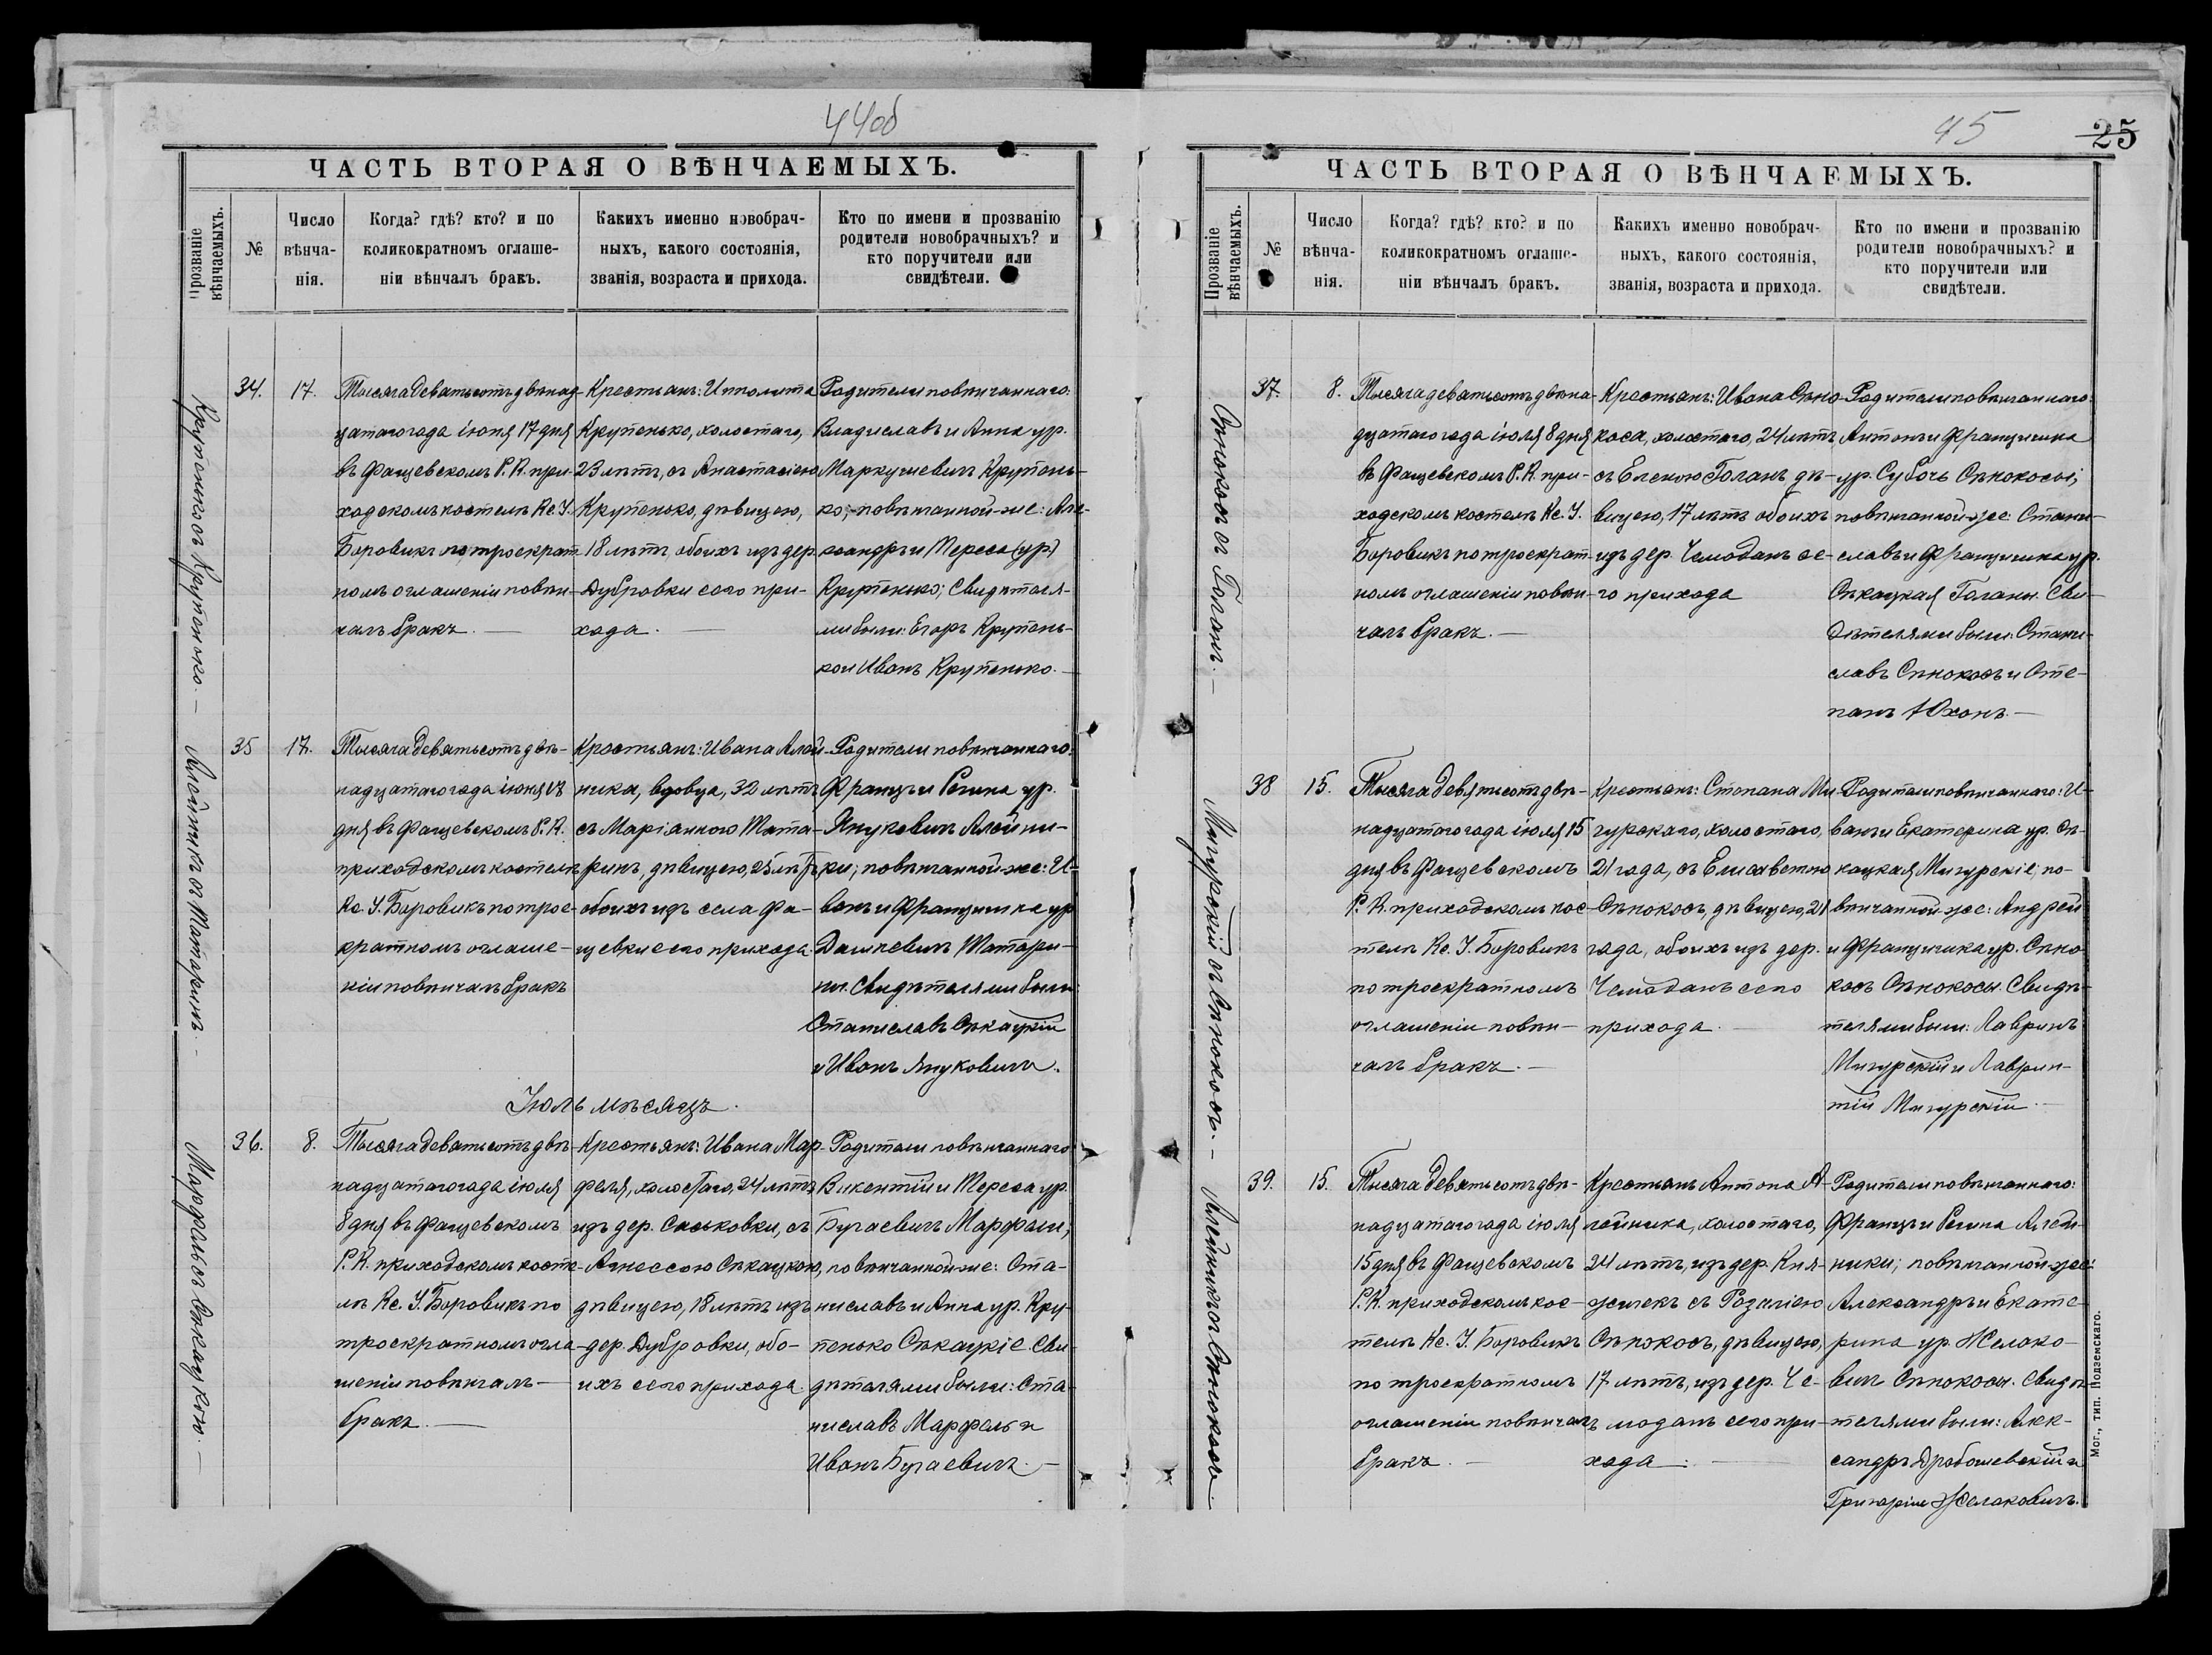 44об
ЧАСТЬ ВТОРАЯ О ВѢНЧАЕМЫХЪ.
Прозваніе вѣнчаемыхъ.
№
Число вѣнча-нія.
Когда? гдѣ? кто? и по
коликократномъ оглаше-
ніи вѣнчалъ бракъ.
Какихъ именно новобрач-
ныхъ, какого состоянія,
званія, возраста и прихода.
Кто по имени и прозванію
родители новобрачныхъ? и
кто поручители или
свидѣтели.
Крупенько съ Крупенько. —
34.
17.
Тысяча девятьсотъ двѣнад-
цатаго года іюня 17 дня
въ Фащевскомъ Р. К. при-
ходскомъ костелѣ Кс. У.
Боровикъ по троекрат-
номъ оглашеніи повѣн-
чалъ бракъ. —
Крестьянъ: Ипполита
Крупенько, холостаго,
23 лѣтъ, съ Анастасіею
Крупенько, дѣвицею,
18 лѣтъ, обоихъ изъ дер.
Дубровки сего при-
хода. —
Родители повѣнчаннаго:
Владиславъ и Анна ур.
Маркушевичъ Крупень-
ко; повѣнчанной-же: Але-
ксандръ и Тереса (ур.)
Крупенько; Свидѣтеля-
ми были: Егоръ Крупень-
ко и Иванъ Крупенько. —
Алейникъ съ Татаринъ. —
35
17.
Тысяча девятьсотъ двѣ-
надцатаго года іюня 18
дня въ Фащевскомъ Р. К.
приходскомъ костелѣ
Кс. У. Боровикъ по трое-
кратномъ оглаше-
ніи повѣнчалъ бракъ
Крестьянъ: Ивана Алей-
ника, вдовца, 32 лѣтъ
съ Маріанною Тата-
ринъ, дѣвицею, 25 лѣтъ
обоихъ изъ села Фа-
щевки сего прихода
Родители повѣнчаннаго:
Францъ и Регина ур.
Янукевичъ Алейни-
ки; повѣнчанной-же: И-
ванъ и Францишка ур
Дашкевичъ Татари-
ны. Свидѣтелями были:
Станиславъ Сѣкацкій
и Иванъ Януковичъ.
Іюль мѣсяцъ.
Марфель съ Сѣкацкою. —
36.
8.
Тысяча девятьсотъ двѣ-
надцатаго года іюля
8 дня въ Фащевскомъ
Р. К. приходскомъ косте-
лѣ Кс. У. Боровикъ по
троекратномъ огла-
шеніи повѣнчалъ —
бракъ. —
Крестьянъ: Ивана Мар-
феля, холостаго, 24 лѣтъ,
изъ дер. Саськовки, съ
Агнессою Сѣкацкою,
дѣвицею, 18 лѣтъ изъ
дер. Дубровки, обо-
ихъ сего прихода.
Родители повѣнчаннаго:
Викентій и Тереса ур.
Бугаевичъ Марфели;
повѣнчанной-же: Ста-
ниславъ и Анна ур. Кру-
пенько Сѣкацкіе. Сви-
дѣтелями были: Ста-
ниславъ Марфель и
Иванъ Бугаевичъ. —
45
25
ЧАСТЬ ВТОРАЯ О ВѢНЧАЕМЫХЪ.
Прозваніе вѣнчаемыхъ.
№
Число вѣнча-нія.
Когда? гдѣ? кто? и по
коликократномъ оглаше-
ніи вѣнчалъ бракъ.
Какихъ именно новобрач-
ныхъ, какого состоянія,
званія, возраста и прихода.
Кто по имени и прозванію
родители новобрачныхъ? и
кто поручители или
свидѣтели.
Сѣнокосъ съ Голанъ. —
37.
8.
Тысяча девятьсотъ двѣна-
дцатаго года іюля 8 дня
въ Фащевскомъ Р. К. при-
ходскомъ костелѣ Кс. У.
Боровикъ по троекрат-
номъ оглашеніи повѣн-
чалъ бракъ. —
Крестьянъ: Ивана Сѣно-
коса, холостаго, 24 лѣтъ
съ Еленою Голанъ дѣ-
вицею, 17 лѣтъ обоихъ
изъ дер. Чемоданъ се-
го прихода
Родители повѣнчаннаго:
Антонъ и Францишка
ур. Субочь Сѣнокосы;
повѣнчанной-же: Стани-
славъ и Францишка ур.
Сѣкацкая Голаны. Сви-
дѣтелями были: Стани-
славъ Сѣнокосъ и Сте-
панъ Юхонъ. —
Мигурскій съ Сѣнокосъ. —
38
15.
Тысяча девятьсотъ двѣ-
надцатаго года іюля 15
дня въ Фащевскомъ
Р. К. приходскомъ кос-
телѣ Кс. У. Боровикъ
по троекратномъ
оглашеніи повѣн-
чалъ бракъ. —
Крестьянъ: Степана Ми-
гурскаго, холостаго,
21 года, съ Елисаветою
Сѣнокосъ, дѣвицею, 21
года, обоихъ изъ дер.
Чемоданъ сего
прихода. —
Родители повѣнчаннаго: И-
ванъ и Екатерина ур. Сѣ-
кацкая Мигурскіе; по-
вѣнчанной-же: Андрей
и Францишка ур. Сѣно-
косъ Сѣнокосы. Свидѣ-
телями были: Лаврынъ
Мигурскій и Лаврен-
тій Мигурскій. —
Алейникъ съ Сѣнокосъ
39.
15.
Тысяча девятьсотъ двѣ-
надцатаго года іюля
15 дня въ Фащевскомъ
Р. К. приходскомъ кос-
телѣ Кс. У. Боровикъ
по троекратномъ
оглашеніи повѣнчалъ
бракъ. —
Крестьянъ Антона А-
лейника, холостаго,
24 лѣтъ, изъ дер. Кня-
жичекъ съ Розаліею
Сѣнокосъ, дѣвицею,
17 лѣтъ, изъ дер. Че-
моданъ сего при-
хода. —
Родители повѣнчаннаго:
Францъ и Регина Алей-
ники; повѣнчанной-же:
Александръ и Екате-
рина ур. Желако-
вичъ Сѣнокосы. Свидѣ-
телями были: Алек-
сандръ Дробошевскій и
Григорій Желаковичъ.
Мог., тип. Подземскаго.